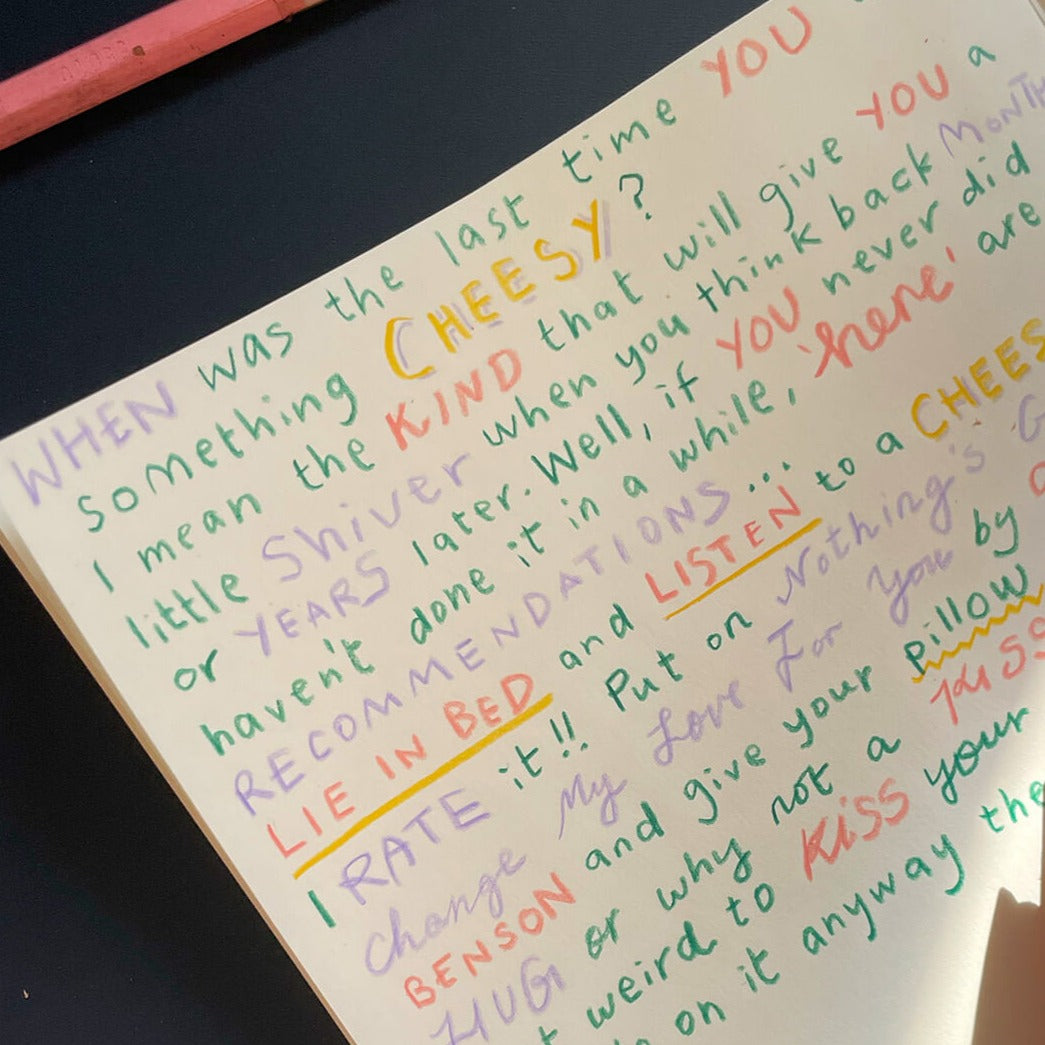 WHEN was the last time YOU
something CHEESY?
I mean the KIND that will give YOU a
little Shiver when you think back MONTH
or YEARS later. Well, if YOU never did
haven't done it in a while, 'here' are
RECOMMENDATIONS...
LIE IN BED and LISTEN to a CHEES
I RATE it!! Put on Nothing's G
Change My Love For You by
BENSON and give your pillow
HUG or why not a KISS
weird to KiSS your
on it anyway the